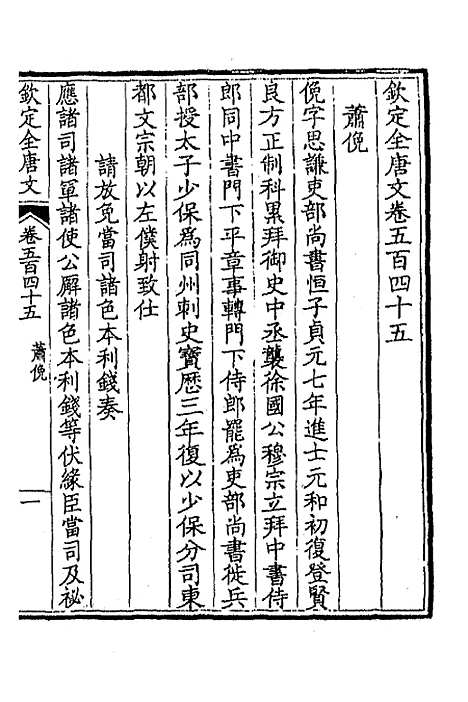 欽定全唐文卷五百四十五
蕭俛
俛字思謙吏部尚書恒子貞元七年進士元和初復登賢
良方正制科累拜御史中丞襲徐國公穆宗立拜中書侍
郎同中書門下平章事轉門下侍郎罷為吏部尚書徙兵
部授太子少保為同州刺史寶歷三年復以少保分司東
都文宗朝以左僕射致仕
請放免當司諸色本利錢奏
應諸司諸軍諸使公廨諸色本利錢等伏緣臣當司及祕
欽定全唐文
卷五百四十五
蕭俛
一